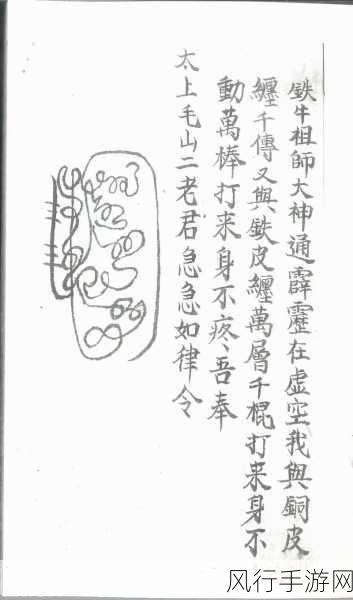 鉄牛祖師大神通霹靂在虚空我與銅皮
纏千傳又與鉄皮纏萬層千棍打来身不
動萬棒打来身不疼吾奉
太上毛山二老君急急如律令
风行手游网